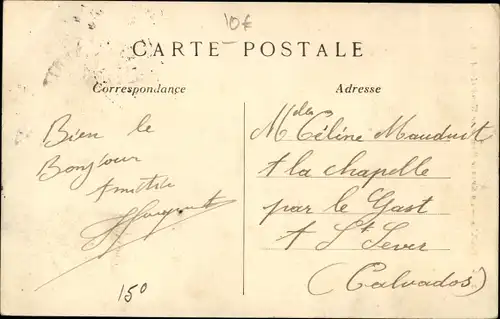 10€
CARTE POSTALE
Correspondance
Adresse
Bien le
Bonjour
Amitiés
150
Mdlle Céline Mauduit
A la chapelle
par le Gast
A St Sever
(Calvados)